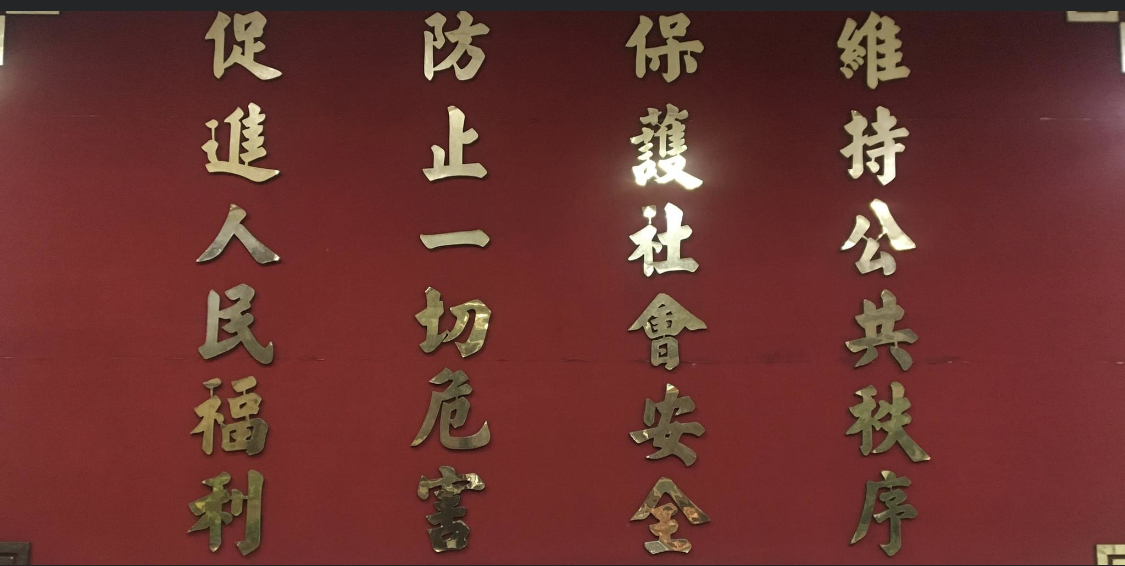 維持公共秩序
保護社會安全
防止一切危害
促進人民福利